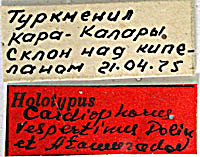 Туркмения
Кара-Калары,
Склон над кипе-
ланом 21.04.75
Holotypus
Cardiophorus
vespertinus Dolin
et Atamuradov